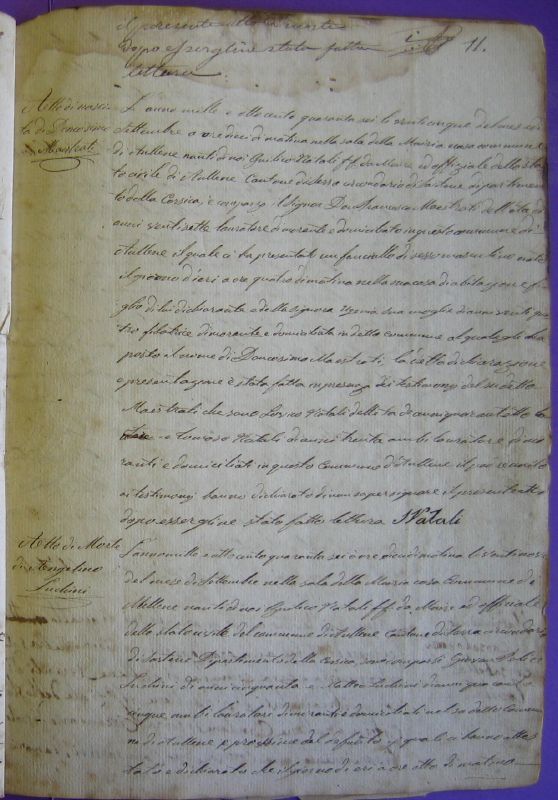 il presente atto
dopo essergline stata fatta 11.
lettura
Atto di nasci
ta di Doncosimo
Maestrati
L'anno mille e otto cento quaranta sei li venti cinque del mese di
Settembre a ore dieci di matina nella sala della Mairia casa commune
di Aullene nanti di noi Natali ff. da Maire ed offiziale dello sta
to civile di Aullene Cantone di Serra circondario di Sartene dipartimen
to della Corsica, è comparso il Signor Don Francesco Maestrati dell'età di
anni venti sette lauratore dimorante e domiciliato in questo commune di
Aullene il quale ci ha presentato un fanciullo di sesso masculino nato
il giorno d'ieri a ore quatro di matina nella sua casa d'abitazione fi
glio di lui dichiarante e della signora sua moglie di anni venti qua
tro filatrice dimorante e domiciliata in detto commune al quale gli ha
posto il nome di Doncosimo Maestrati la detta dichiarazione
e presentazione è stata fatta in presenza dei testimonj del sudetto
Maestrati che sono Natali dell'età di anni quarantotto
e Natali di anni trenta ambi lauratore dimo
ranti e domiciliati in questo Commune d'Aullene il
ai testimonj hanno dichiarato di non saper signare il presente atto
dopo essergline stato fatto lettura Natali
Atto di Morte
di Angelino
Luciani
L'anno mille e otto cento quaranta sei a ore dieci di matina li venti nove
del mese di Settembre nella sala della Mairia casa Commune di
Aullene nanti di noi Natali ff. da Maire ed officiale
dello stato civile del commune di Aullene Cantone di Serra circondario
di Sartene Dipartimento della Corsica, sono comparsi Giovan
Luciani di anni cinquanta e Matteo Luciani di anni quaranta
cinque ambi lauratore dimoranti e domiciliati nel sudetto Commu
ne di Aullene e del i quali ci hanno atte
stato e dichiarato che il giorno di ieri a ore otto di matina